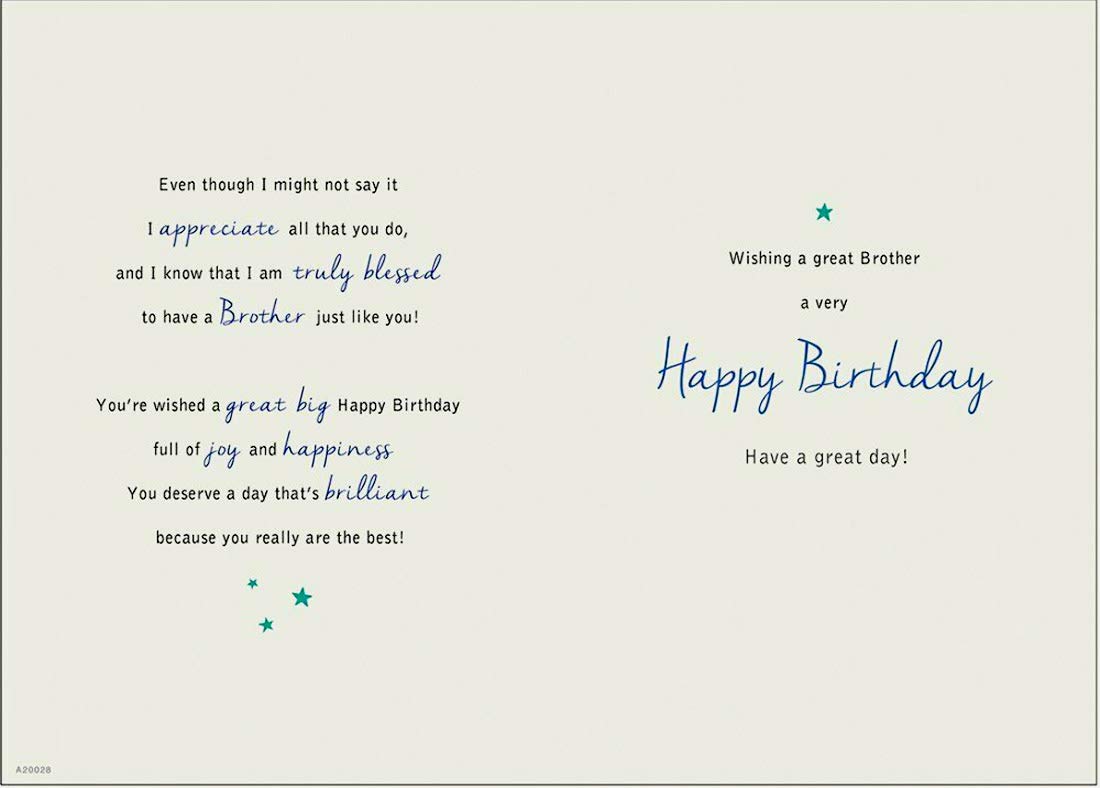 Even though I might not say it
I appreciate all that you do,
and I know that I am truly blessed
to have a Brother just like you!
You're wished a great big Happy Birthday
full of joy and happiness
You deserve a day that's brilliant
because you really are the best!
A20028
Wishing a great Brother
a very
Happy Birthday
Have a great day!